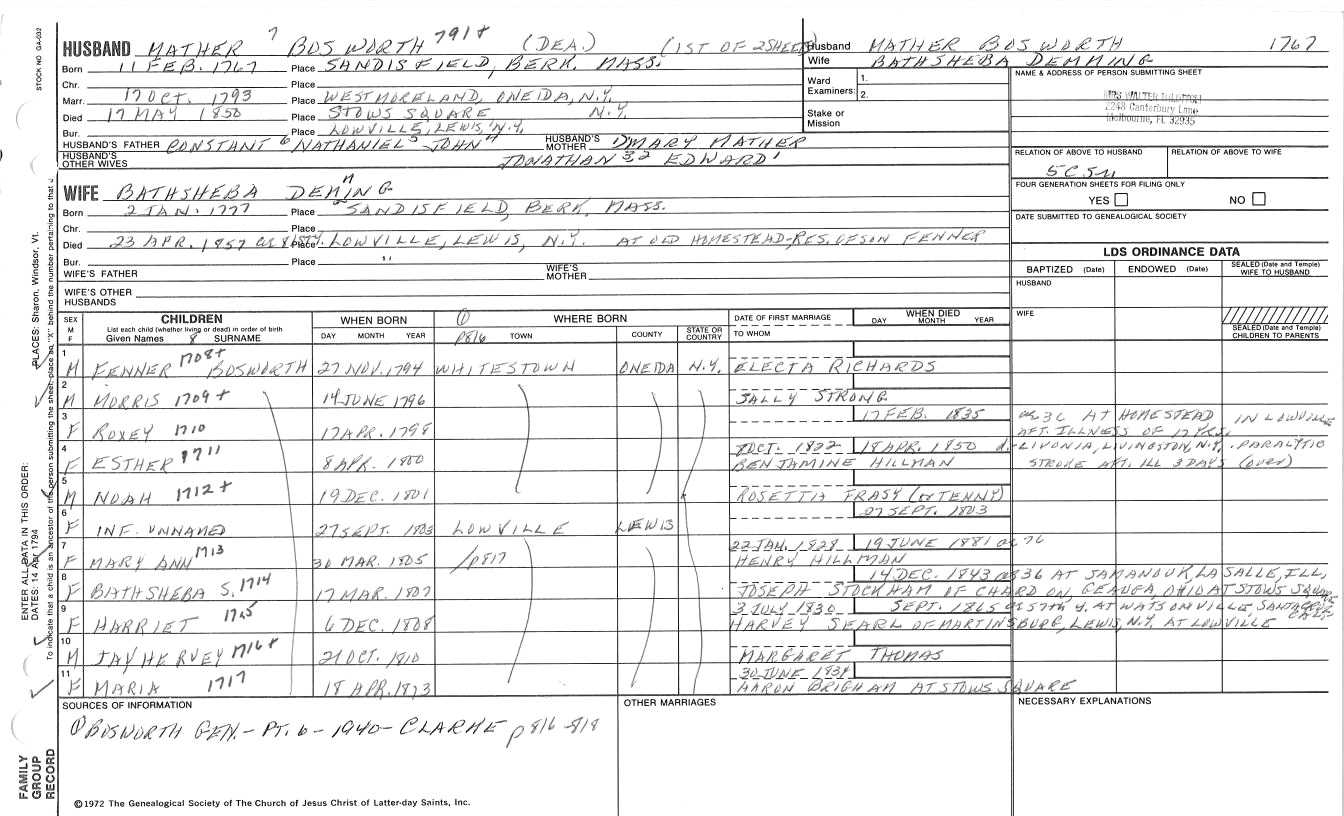 STOCK NO GA-032
HUSBAND MATHER 7 BOSWORTH 791+ (DEA.) (1ST OF 2 SHEETS)
Born 11 FEB. 1767 Place SANDISFIELD, BERK. MASS.
Chr. Place
Marr. 17 OCT. 1793 Place WESTMORELAND, ONEIDA, N.Y.
Died 17 MAY 1850 Place STOWS SQUARE N.Y.
Bur. Place LOWVILLE, LEWIS, N.Y.
HUSBAND'S FATHER CONSTANT 6 NATHANIEL 5 JOHN 4 HUSBAND'S MOTHER MARY MATHER
HUSBAND'S OTHER WIVES JONATHAN 3 2 EDWARD 1
Husband MATHER BOSWORTH 1767
Wife BATHSHEBA DEMMING
Ward Examiners: 1.
2.
Stake or Mission
NAME & ADDRESS OF PERSON SUBMITTING SHEET
MRS WALTER
2248 Canterbury Lane
Melbourne, FL 32935
RELATION OF ABOVE TO HUSBAND RELATION OF ABOVE TO WIFE
5C 5
FOUR GENERATION SHEETS FOR FILING ONLY
YES NO
DATE SUBMITTED TO GENEALOGICAL SOCIETY
WIFE BATHSHEBA DEMING
Born 2 JAN. 1777 Place SANDISFIELD, BERK. MASS.
Chr. Place
Died 23 APR. 1857 Place LOWVILLE, LEWIS, N.Y. AT OLD HOMESTEAD-RES. OF SON FENNER
Bur. Place "
WIFE'S FATHER WIFE'S MOTHER
WIFE'S OTHER HUSBANDS
LDS ORDINANCE DATA
BAPTIZED (Date) ENDOWED (Date) SEALED (Date and Temple) WIFE TO HUSBAND
HUSBAND
WIFE
SEALED (Date and Temple) CHILDREN TO PARENTS
SEX M F CHILDREN List each child (whether living or dead) in order of birth Given Names 8 SURNAME
WHEN BORN DAY MONTH YEAR
① p816 WHERE BORN TOWN COUNTY STATE OR COUNTRY
DATE OF FIRST MARRIAGE TO WHOM
WHEN DIED DAY MONTH YEAR
1 M FENNER 1708+ BOSWORTH 27 NOV. 1794 WHITESTOWN ONEIDA N.Y. ELECTA RICHARDS
2 M MORRIS 1709+ 14 JUNE 1796 SALLY STRONG
3 F ROXEY 1710 17 APR. 1798 17 FEB. 1835 AT HOMESTEAD IN LOWVILLE AFT. ILLNESS OF 17 YRS.
4 F ESTHER 1711 8 APR. 1800 OCT. 1822 18 APR. 1850 d.-LIVONIA, LIVINGSTON, N.Y. PARALYTIC
BENJAMINE HILLMAN STROKE AFT. ILL 3 DAYS (over)
5 M NOAH 1712+ 19 DEC. 1801 ROSETTIA FRASY (or TENNY)
6 F INF. UNNAMED 27 SEPT. 1803 LOWVILLE LEWIS 27 SEPT. 1803
7 F MARY ANN 1713 30 MAR. 1805 p817 22 JAN. 1828 19 JUNE 1881 ae 76
HENRY HILLMAN
8 F BATHSHEBA S. 1714 17 MAR. 1807 14 DEC. 1843 ae 36 AT SAMANOUK, LA SALLE, ILL,
JOSEPH STOCKHAM OF CHARDON, GEAUGA, OHIO AT STOWS SQUARE
9 F HARRIET 1715 6 DEC. 1808 3 JULY 1830 SEPT. 1865 57TH Y. AT WATSONVILLE, SANTA CRUZ CALIF
HARVEY SEARL OF MARTINSBURG, LEWIS, N.Y. AT LOWVILLE
10 M JAY HERVEY 1716+ 21 OCT. 1810 MARGARET THOMAS
11 F MARIA 1717 18 APR. 1813 30 JUNE 1834
AARON BRIGHAM AT STOWS SQUARE
SOURCES OF INFORMATION OTHER MARRIAGES NECESSARY EXPLANATIONS
① BOSWORTH GEN. - PT. 6 - 1940 - CLARKE p816-818
©1972 The Genealogical Society of The Church of Jesus Christ of Latter-day Saints, Inc.
FAMILY GROUP RECORD
ENTER ALL DATA IN THIS ORDER:
DATES: 14 Apr 1794
PLACES: Sharon, Windsor, Vt.
To indicate that a child is an ancestor of the person submitting the sheet, place an "X" behind the number pertaining to that